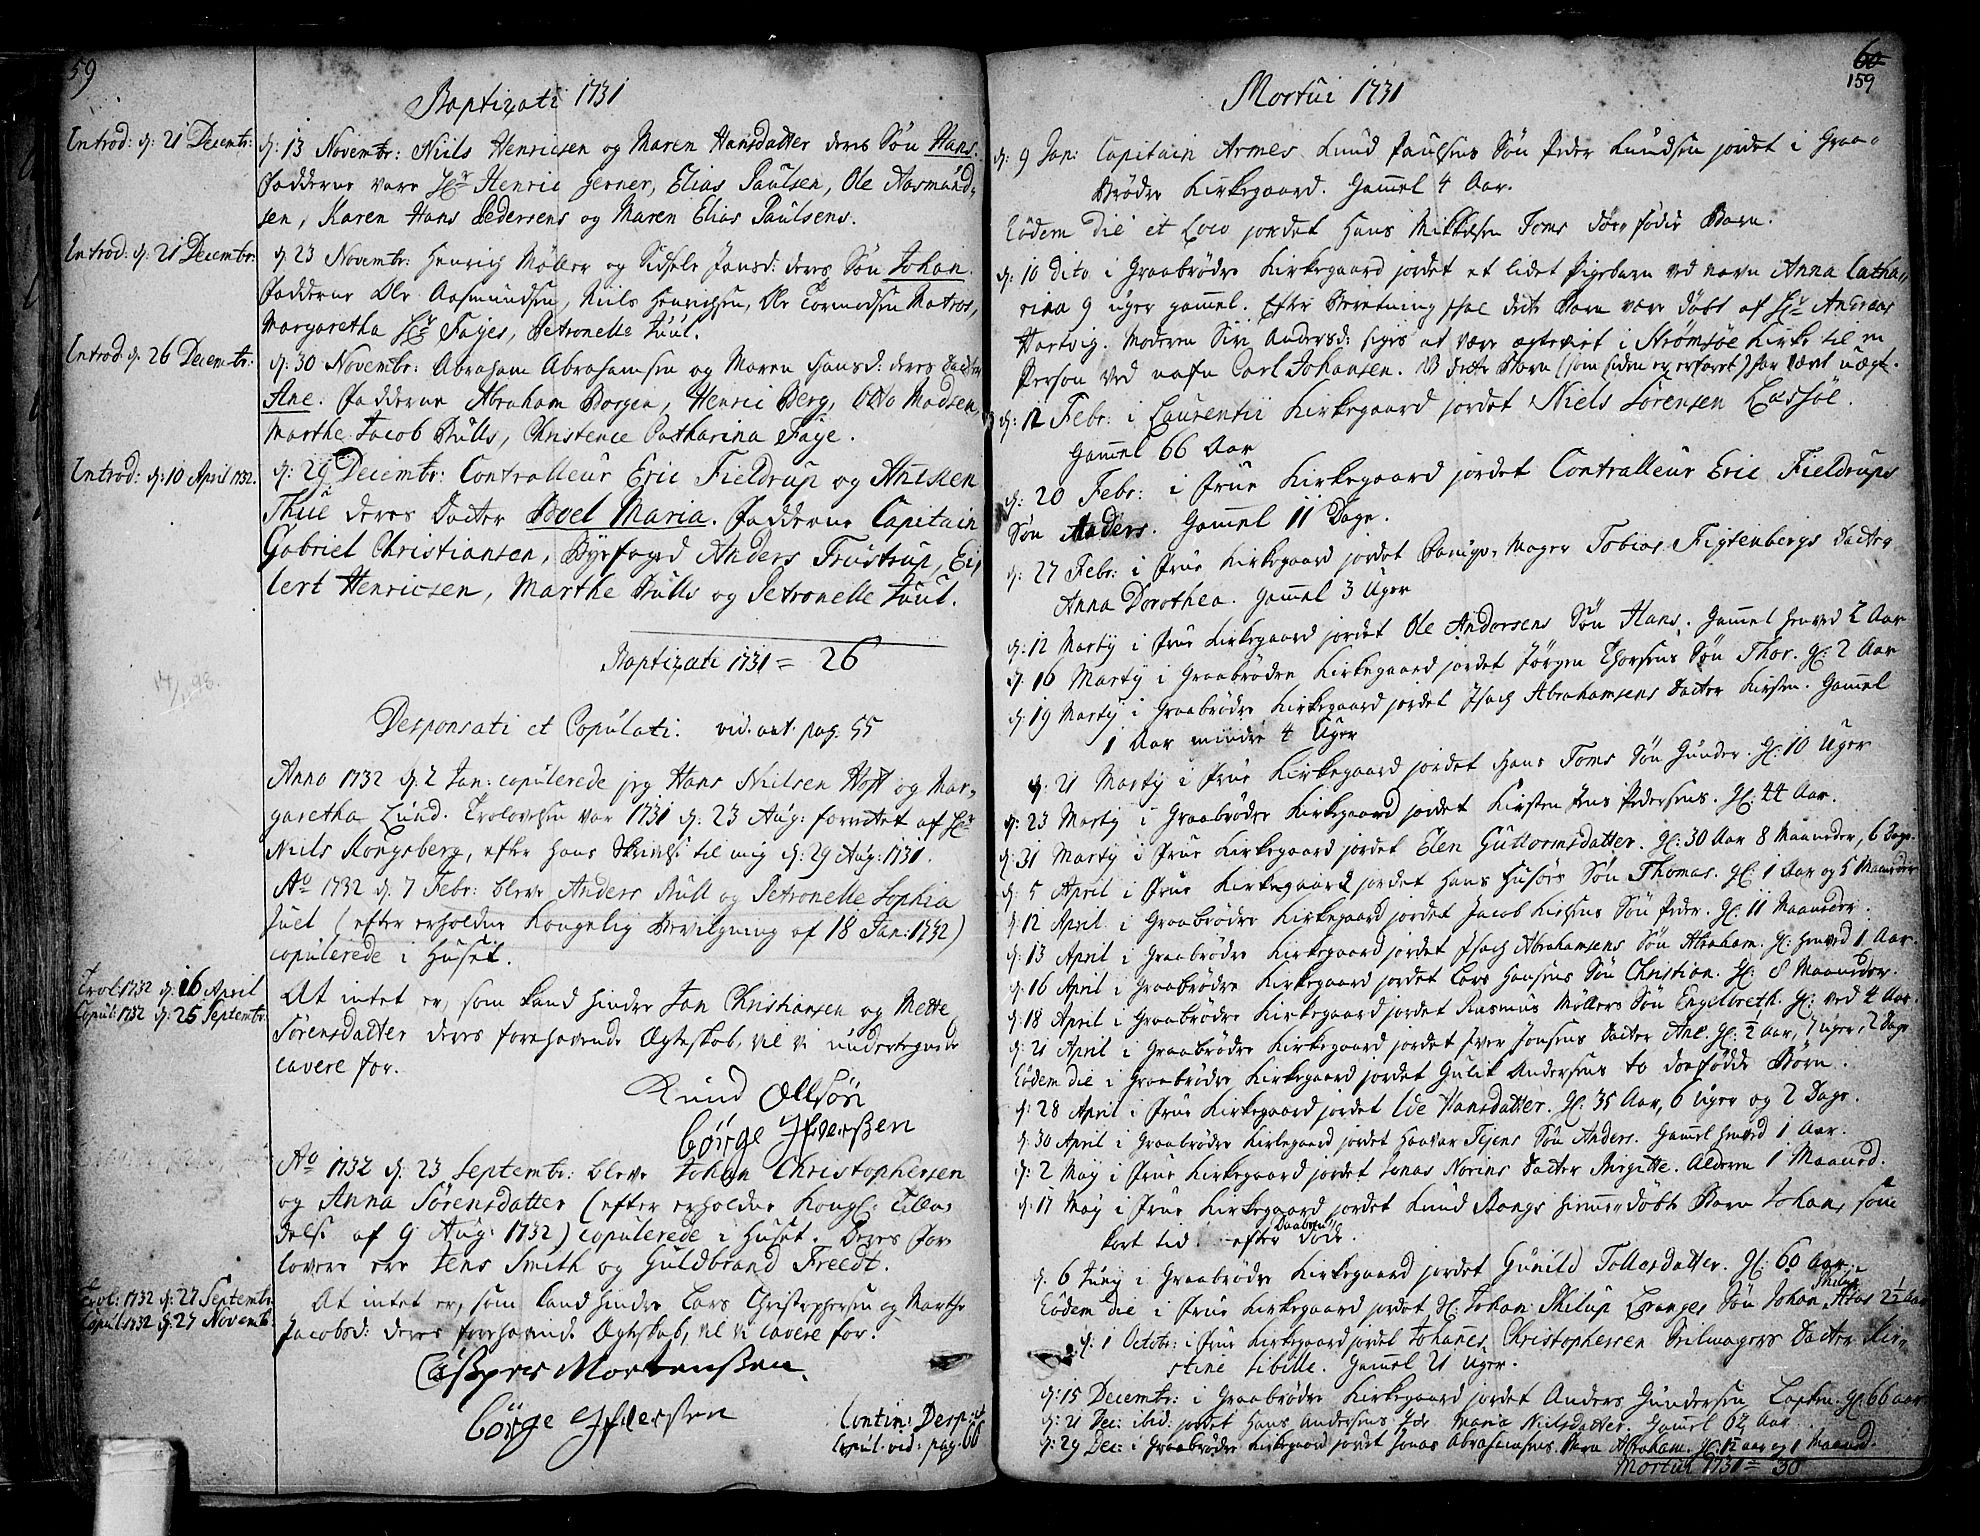 59
Baptizati 1731
Introd: d: 21 Decembr:
d: 13 Novembr: Niels Henricsen og Maren Hansdatter deres Søn Hans.
Fadderne vare Hr Henric Gerner, Elias Paulsen, Ole Aasmund-
sen, Karen Hans Pedersens og Maren Elias Paulsens.
Introd: d: 21 Decembr:
d: 23 Novembr: Henrich Møller og Sidsele Jansd: deres Søn Johan.
Fadderne Ole Aasmundsen, Niels Henrichsen, Ole Tormodsen Matros,
Margaretha Hr Fayes, Petronelle Juul.
Introd: d: 26 Decembr:
d: 30 Novembr: Abraham Abrahamsen og Maren Hansd: deres Datter
Ane. Fadderne Abraham Borgen, Henric Berg, Otto Madsen,
Marthe Jacob Bulls, Christence Catharina Faye.
Introd: d: 10 April 1732.
d: 29 Decembr: Contralleur Eric Fieldrup og
Thue deres Datter Boel Maria. Fadderne Capitain
Gabriel Christiansen, Byefoged Anders Trustrup, Ei-
lert Henricsen, Marthe Bulls og Petronelle Juul.
Baptizati 1731 = 26
Desponsati et Copulati. vid. ant. pag. 55
Anno 1732 d: 2 Jan: copulerede jeg Hans Nielsen Hoft og Mar-
garetha Lund. Trolovelsen var 1731 d: 23 Aug: forrettet af Hr
Niels Kongsberg, efter hans til mig d: 29 Aug: 1731.
Ao 1732 d: 7 Febr: bleve Anders Bull og Petronelle Sophia
Juel (efter erholden Kongelig Bevilgning af 18 Jan: 1732)
copulerede i Huset.
Trol: 1732 d: 16 April
Copul: 1732 d: 25 Septembr:
At intet er, som kand hindre Jan Christiansen og Mette
Sørensdatter deres forehavende Ægteskab, vil vi underskrevne
cavere for.
Knud Ollsøn
Børge Ifverssen
Ao 1732 d: 23 Septembr: bleve Johan Christophersen
og Anna Sørensdatter (efter erholden Kongl: Tilla-
delse af 9 Aug: 1732) copulerede i Huset. Deres For-
lovere ere Jens Smith og Guldbrand Freedt.
Trol: 1732 d: 27 Septembr:
Copul: 1732 d: 27 Novemb:
At intet er, som kand hindre Lars Christophersen og Marthe
Jacobsd: deres forehavend: Ægteskab, vil vi cavere for.
Casper Mortenssen.
Børge Ifverssen
Contin: Desp: et
Copul: vid: pag: 66
60
159
Mortui 1731
d: 9 Jan: Capitain Armes Knud Paulsens Søn Peder Knudsen jordet i Graa-
Brødre Kirkegaard. Gamel 4 Aar.
Eodem die et Loco jordet Hans Mikkelsen Toms dødfødde Barn.
d: 10 Dito i Graabrødre Kirkegaard jordet et lidet Pigebarn ved navn Anna Catha-
rina 9 uger gammel. Efter Beretning skal dette Barn være døbt af Hr Andreas
Hartvig. Moderen Siri Andersd: siges at være ægteviet i Strømsøe Kirke til en
Person ved nafn Carl Johansen. NB dette Barn (som siden er erfaret) har været uægte.
d: 12 Febr: i Laurentii Kirkegaard jordet Niels Sørensen Lassøe.
Gamel 66 Aar
d: 20 Febr: i Frue Kirkegaard jordet Contralleur Eric Fieldrups
Søn Anders. Gamel 11 Dage.
d: 27 Febr: i Frue Kirkegaard jordet Mager Tobias Figtenbergs Datter
Anna Dorothea. Gamel 3 Uger
d: 12 Martij i Frue Kirkegaard jordet Ole Andersens Søn Hans. Gamel henved 2 Aar
d: 16 Martij i Graabrødre Kirkegaard jordet Jørgen Thorsens Søn Thor. Gl: 2 Aar
d: 19 Martij i Graabrødre Kirkegaard jordet Isach Abrahamsens Datter Kirsten. Gamel
1 Aar mindre 4 Uger
d: 21 Martij i Frue Kirkegaard jordet Hans Toms Søn Gunder. Gl: 10 Uger
d: 23 Martij i Graabrødre Kirkegaard jordet Kirsten Jens Pedersens. Gl: 44 Aar.
d: 31 Martij i Frue Kirkegaard jordet Elen Guttormsdatter. Gl: 30 Aar 8 Maaneder, 6 Dage.
d: 5 April i Frue Kirkegaard jordet Hans Husørs Søn Thomas. Gl: 1 Aar og 5 Maaneder
d: 12 April i Graabrødre Kirkegaard jordet Jacob Kielsens Søn Peder. Gl: 11 Maaneder.
d: 13 April i Graabrødre Kirkegaard jordet Isach Abrahamsens Søn Abraham. Gl: henved 1 Aar.
d: 16 April i Graabrødre Kirkegaard jordet Lars Hansens Søn Christian. Gl: 8 Maaneder.
d: 18 April i Graabrødre Kirkegaard jordet Rasmus Møllers Søn Engelbreth. Gl: ved 4 Aar.
d: 21 April i Graabrødre Kirkegaard jordet Iver Jonsens Datter Ane. Gl: ½ aar, 7 uger, 2 Dage
Eodem die i Graabrødre Kirkegaard jordet Gulik Andersens to dødfødde Børn.
d: 28 April i Frue Kirkegaard jordet Ide Hansdatter. Gl: 35 Aar, 6 Uger og 2 Dage.
d: 30 April i Graabrødre Kirkegaard jordet Haavar Tejens Søn Anders. Gamel henved 1 Aar.
d: 2 Maj i Frue Kirkegaard jordet Jonas Norins Datter Birgitte. Alderen 1 Maaned.
d: 17 Maj i Frue Kirkegaard jordet Knud Bangs hiemme-døbte Barn Johan, som
kort tid efter Daaben døde.
d. 6 Junij i Graabrødre Kirkegaard jordet Gunild Tollesdatter. Gl: 60 Aar.
Eodem die i Frue Kirkegaard jordet Hr: Johan Philip Søn Johan Philip 2½ Aar
d: 1 Octobr: i Frue Kirkegaard jordet Johanes Christophersen Seilmagers Datter Kir-
stine Sibille. Gamel 21 Uger.
d: 15 Decembr: i Graabrødre Kirkegaard jordet Anders Gundersen Gl: 66 aar
d: 21 Dec: ibid: jordet Hans Andersens Maria Nielsdatter. Gamel Aar
d: 29 Dec: i Graabrødre Kirkegaard jordet Jonas Abrahamsens Barn Abraham. Gl: aar og 1 Maaned.
Mortui 1731 = 30